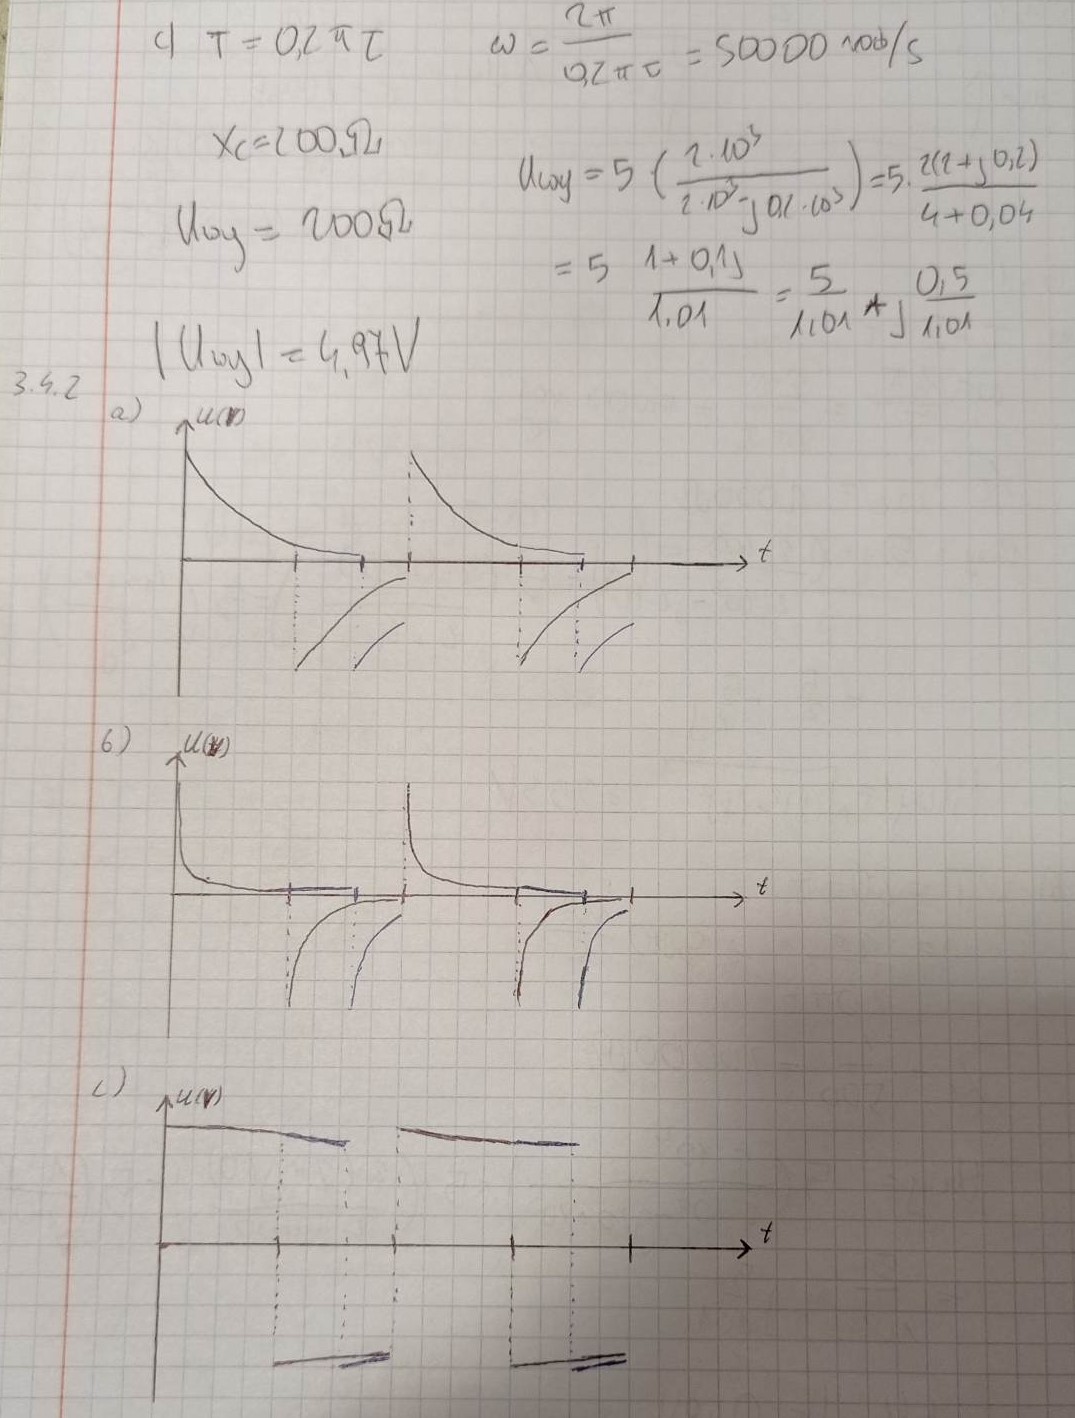 c) T = 0,2 π τ    ω = 2π / 0,2 π τ = 50000 rad/s
Xc = 200 Ω    Uwy = 5 ( 2·10³ / 2·10³ - j 0,2·10³ ) = 5· 2(2 + j 0,2) / 4 + 0,04
Uwy = 200 Ω    = 5 1 + 0,1j / 1,01 = 5 / 1,01 + j 0,5 / 1,01
|Uwy| = 4,97 V
3.4.2
a) U(V)
t
b) U(V)
t
c) U(V)
t